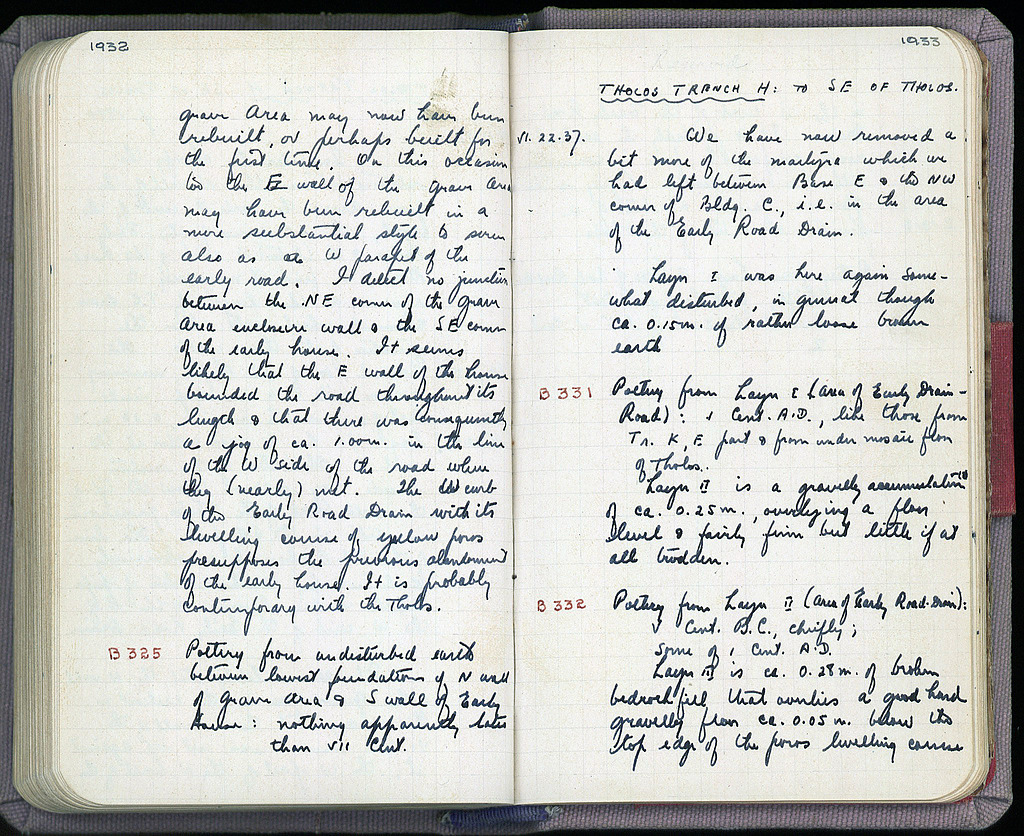 1932
grave Area may now have been
rebuilt, or perhaps built for
the first time. On this occasion
too the E wall of the grave area
may have been rebuilt in a
more substantial style to serve
also as a W parapet of the
early road. I detect no junction
between the NE corner of the grave
area enclosure wall & the SE corner
of the early house. It seems
likely that the E wall of the house
bounded the road throughout its
length & that there was consequently
a jog of ca. 1.00m. in the line
of the W side of the road where
they (nearly) met. The W curb
of the Early Road Drain with its
levelling course of yellow poros
presupposes the previous abandonment
of the early house. It is probably
contemporary with the Tholos.
B 325 Pottery from undisturbed earth
between lowest foundations of N wall
of grave area & S wall of Early
House : nothing apparently later
than VII Cent.
1933
THOLOS TRENCH H: TO SE OF THOLOS.
VI. 22. 37. We have now removed a
bit more of the martyra which we
had left between Base E & the NW
corner of Bldg. C., i.e. in the area
of the Early Road Drain.
Layer I was here again some-
what disturbed, in general though
ca. 0.15m. of rather loose brown
earth
B 331 Pottery from Layer I (Area of Early Drain-
Road) : I Cent. A.D., like those from
Tr. K, F, part & from under mosaic floor
of Tholos.
Layer II is a gravelly accumulation
of ca. 0.25m., overlying a floor
level & fairly firm but little if at
all trodden.
B 332 Pottery from Layer II (Area of Early Road-Drain):
V Cent. B.C., chiefly;
Some of I Cent. A.D.
Layer III is ca. 0.28m. of broken
bedrock fill that overlies a good hard
gravelly floor ca. 0.05 m. below the
top edge of the poros levelling course